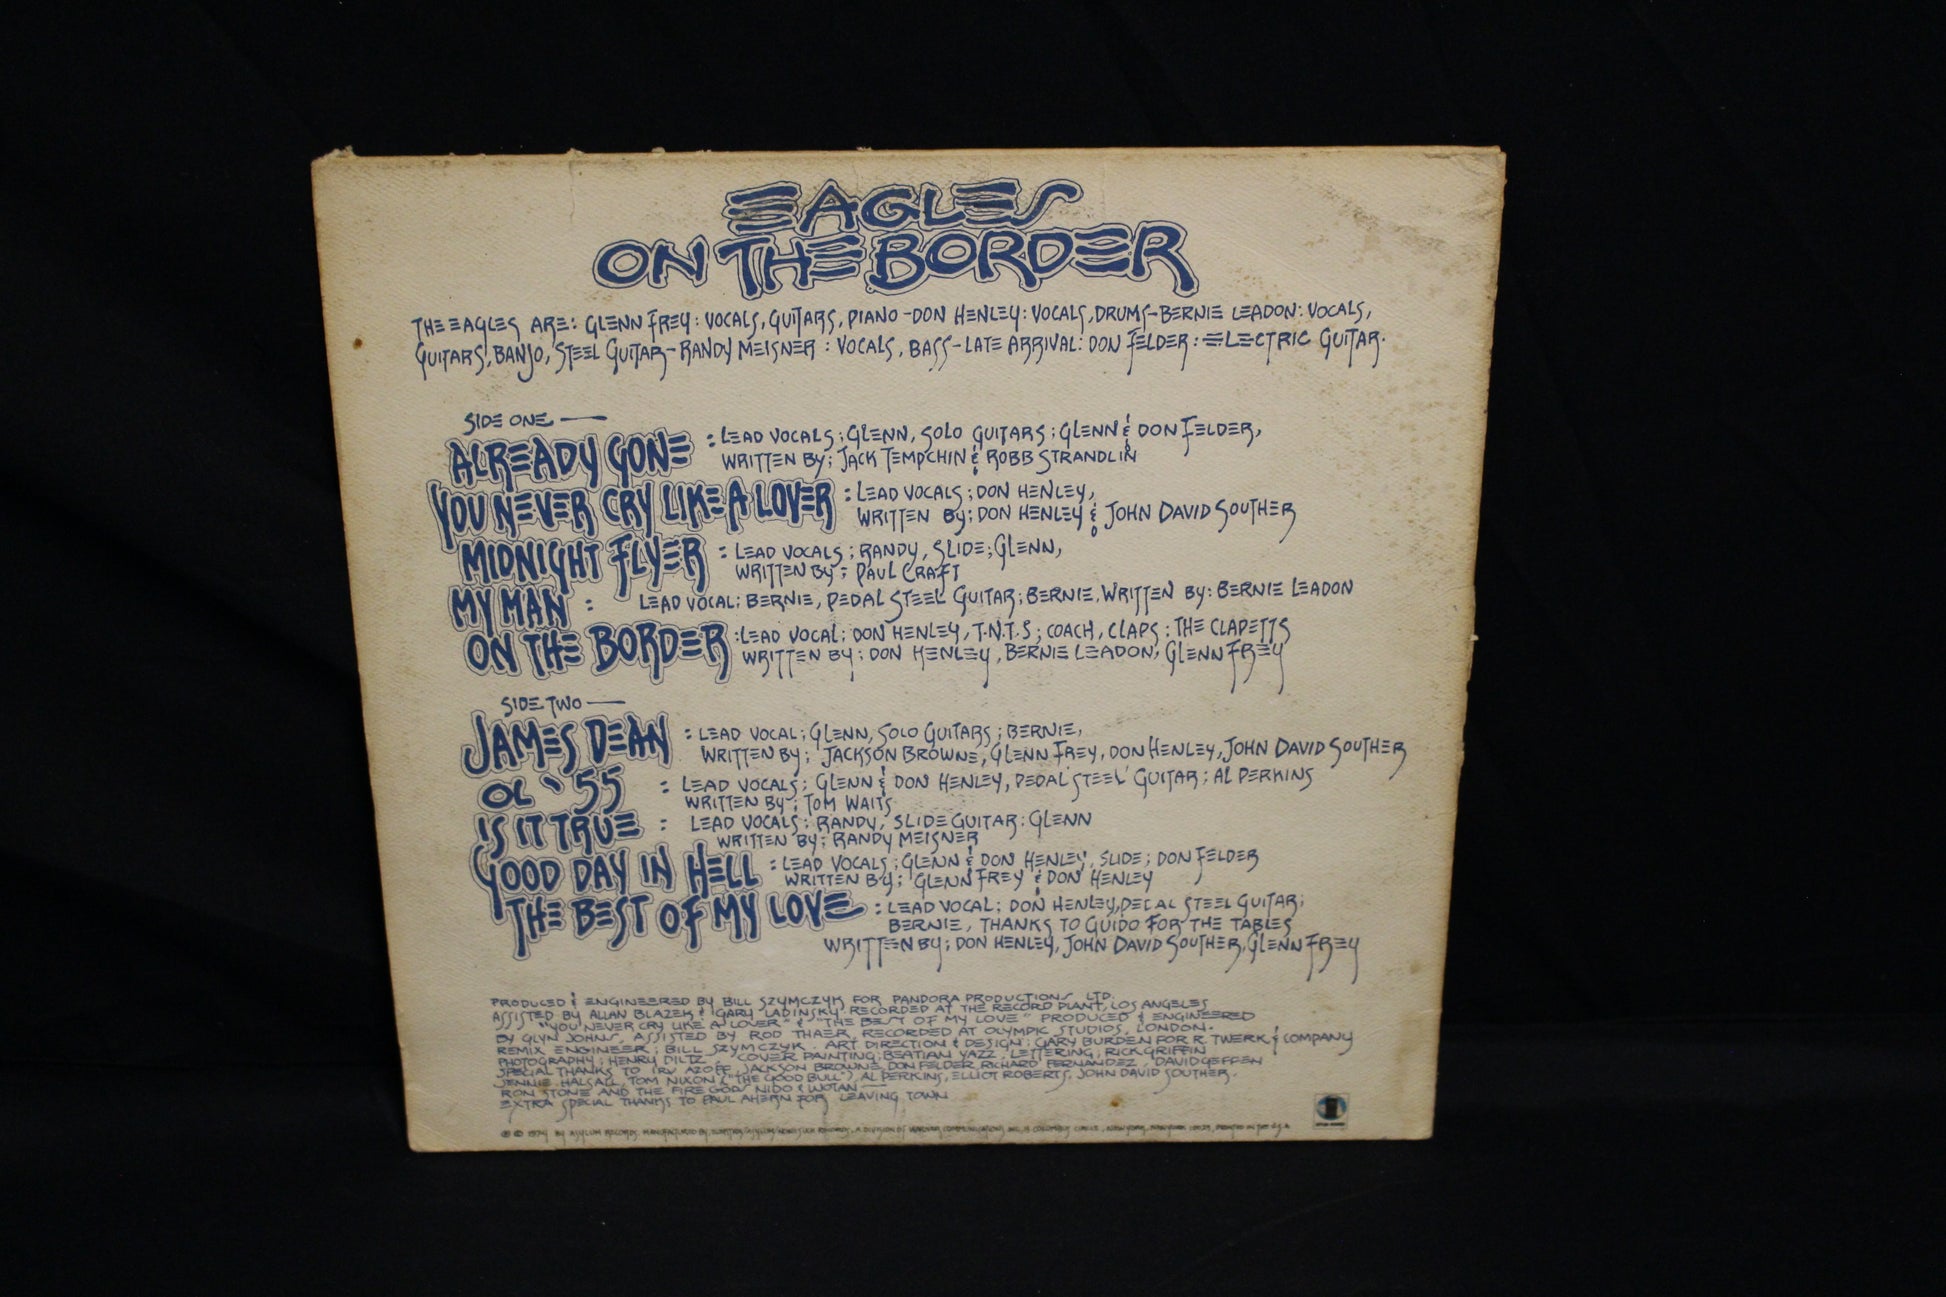 EAGLES
ON THE BORDER
THE EAGLES ARE: GLENN FREY: VOCALS, GUITARS, PIANO - DON HENLEY: VOCALS, DRUMS - BERNIE LEADON: VOCALS,
GUITARS, BANJO, STEEL GUITAR - RANDY MEISNER: VOCALS, BASS - LATE ARRIVAL: DON FELDER: ELECTRIC GUITAR.
SIDE ONE —
ALREADY GONE : LEAD VOCALS; GLENN, SOLO GUITARS; GLENN & DON FELDER,
WRITTEN BY; JACK TEMPCHIN & ROBB STRANDLIN
YOU NEVER CRY LIKE A LOVER : LEAD VOCALS; DON HENLEY,
WRITTEN BY; DON HENLEY & JOHN DAVID SOUTHER
MIDNIGHT FLYER : LEAD VOCALS; RANDY, SLIDE; GLENN,
WRITTEN BY; PAUL CRAFT
MY MAN : LEAD VOCAL; BERNIE, PEDAL STEEL GUITAR; BERNIE, WRITTEN BY: BERNIE LEADON
ON THE BORDER : LEAD VOCAL; DON HENLEY, T.N.T.S; COACH, CLAPS: THE CLAPETTS
WRITTEN BY; DON HENLEY, BERNIE LEADON, GLENN FREY
SIDE TWO —
JAMES DEAN : LEAD VOCAL; GLENN, SOLO GUITARS; BERNIE,
WRITTEN BY; JACKSON BROWNE, GLENN FREY, DON HENLEY, JOHN DAVID SOUTHER
OL '55 : LEAD VOCALS; GLENN & DON HENLEY, PEDAL STEEL GUITAR; AL PERKINS
WRITTEN BY; TOM WAITS
IS IT TRUE : LEAD VOCALS; RANDY, SLIDE GUITAR: GLENN
WRITTEN BY; RANDY MEISNER
GOOD DAY IN HELL : LEAD VOCALS; GLENN & DON HENLEY, SLIDE; DON FELDER
WRITTEN BY; GLENN FREY & DON HENLEY
THE BEST OF MY LOVE : LEAD VOCAL; DON HENLEY, PEDAL STEEL GUITAR;
BERNIE, THANKS TO GUIDO FOR THE TABLES
WRITTEN BY; DON HENLEY, JOHN DAVID SOUTHER, GLENN FREY
PRODUCED & ENGINEERED BY BILL SZYMCZYK FOR PANDORA PRODUCTIONS LTD.
ASSISTED BY ALLAN BLAZEK & GARY LADINSKY, RECORDED AT THE RECORD PLANT, LOS ANGELES
"YOU NEVER CRY LIKE A LOVER" & "THE BEST OF MY LOVE" PRODUCED & ENGINEERED
BY GLYN JOHNS, ASSISTED BY ROD THAER, RECORDED AT OLYMPIC STUDIOS, LONDON.
REMIX ENGINEER; BILL SZYMCZYK. ART DIRECTION & DESIGN; GARY BURDEN FOR R. TWERK & COMPANY
PHOTOGRAPHY; HENRY DILTZ. COVER PAINTING; BEATIAN YAZZ. LETTERING; RICK GRIFFIN
SPECIAL THANKS TO IRV AZOFF, JACKSON BROWNE, DON FELDER, RICHARD FERNANDEZ, DAVID GEFFEN
JENNIE HALSALL, TOM NIXON ("THE GOOD BULL"), AL PERKINS, ELLIOT ROBERTS, JOHN DAVID SOUTHER.
RON STONE AND THE FIRE GODS NIDO & WOTAN —
EXTRA SPECIAL THANKS TO PAUL AHERN FOR LEAVING TOWN
℗ © 1974 BY ASYLUM RECORDS. MANUFACTURED BY ELEKTRA/ASYLUM/NONESUCH RECORDS, A DIVISION OF WARNER COMMUNICATIONS INC. 15 COLUMBUS CIRCLE, NEW YORK, NEW YORK 10023, PRINTED IN THE U.S.A